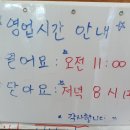 영업시간 안내
열어요: 오전 11:00
닫아요: 저녁 8시
감사합니다.